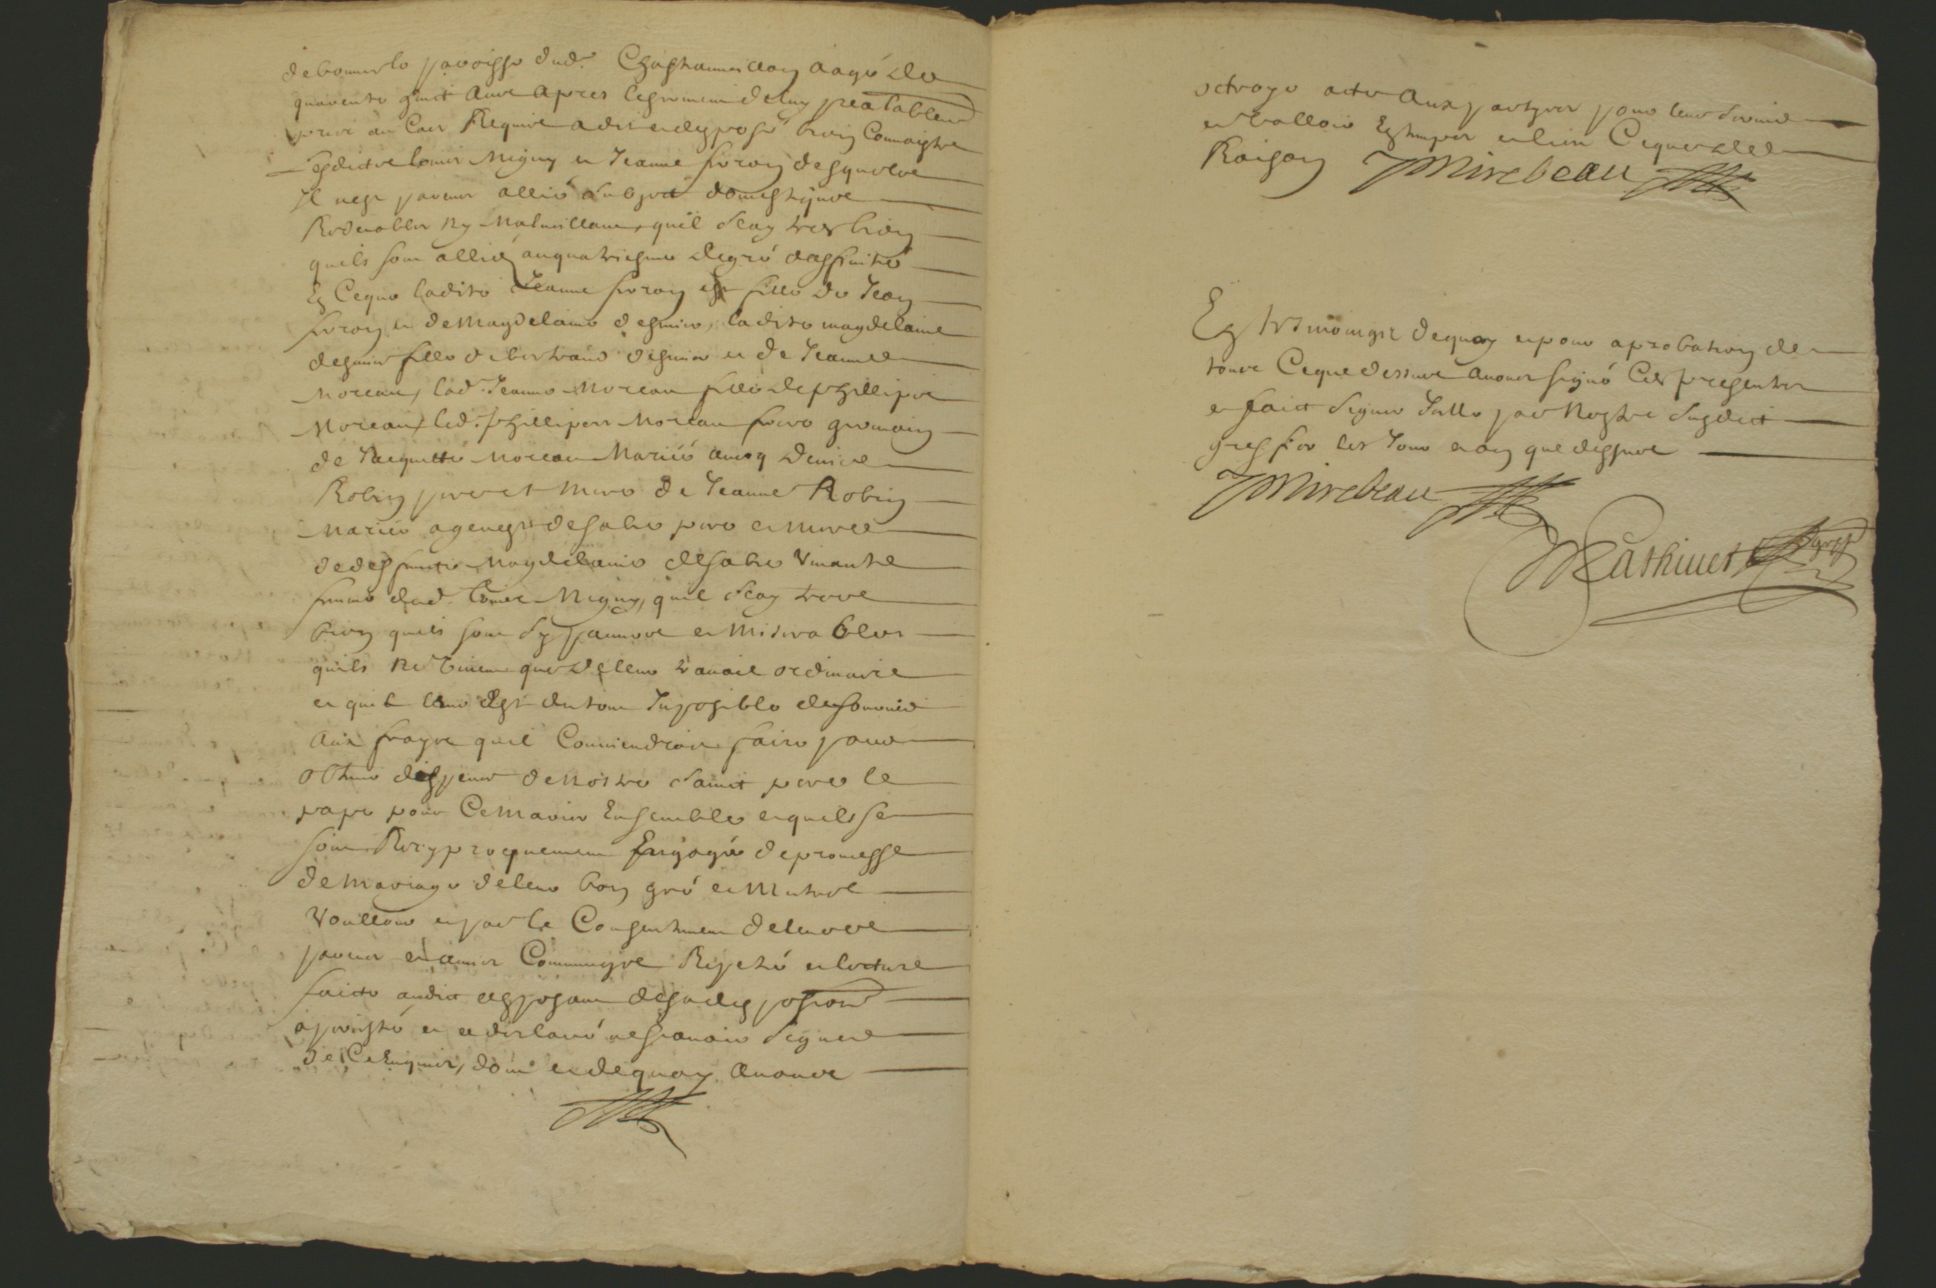 de bonnerlo paroisse dud. Chastaumeillan aagé de
quarente huict ans apres le sermant de luy prealablem
prins au cas Requis a dit et depposé bien Connaistre
lesdictz Louis Migny et Jeanne firon desquelz
Il nest parent allié domestique
Redevable ny malveillant, quil scay tres bien
quils sont alliés au quatriesme degré daffinité
En Ceque ladite Jeanne firon est fille de Jean
firon et de Magdelaine desmier, ladite magdelaine
desmier fille de bertrand desmier et de Jeanne
Moreau, lad. Jeanne Moreau fille de phillipe
Moreau, led. phillipe Moreau frere germain
de Jacquette Moreau Mariée avecq Denis
Robin pere et mere de Jeanne Robin
Mariée a genest desabre pere et mere
de deffuncte Magdelaine desabre vivante
femme dud. Louis Migny, quil scay tres
bien quils sont sy pauvres et miserables
quils ne vivent que de leur travail ordinaire
et quil leur est du tout Inposible de fournir
aux frays quil Conviendroit faire pour
obtenir dispense de nostre sainct pere le
pape pour Ce marier Ensemble et quils se
sont Recyproquement Engagés de promesse
de mariage de leur bon gré et mutuel
voulloir et par le Consentement de leurs
parens et amis Communs Repeté et lecture
faicte audict exposant desadepposition
a percisté et a declaré ne scavoir signer
de Ce Enquis, dont et dequoy avons
octroyé acte aux partyes pour leur servir
et valloir En temps et lieu Ceque de
Raison JMirebeau
En tesmoings dequoy et pour aprobation de
tout Ceque dessus avons signé Ces presentes
et faict signer Icelle par Nostre susdict
greffier les Jour et an que dessus
JMirebeau
Mathivet gref